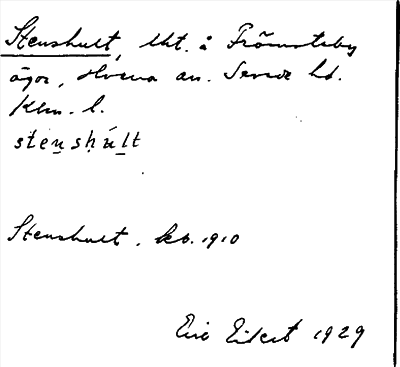 Stenshult, lht. å Frömsteby
ägor, Hvena sn. Sevede hd.
Klm. l.
stens̥húlt
Stenshult. kb. 1910
Eric Eilert 1929